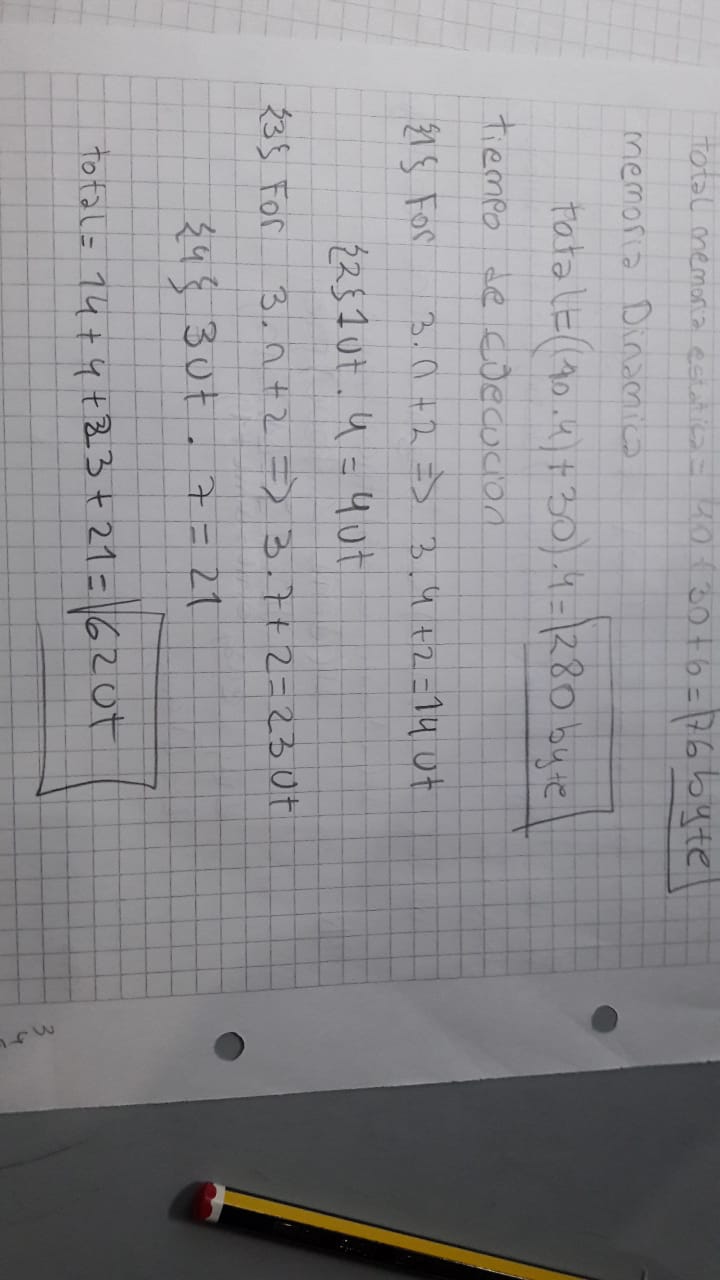 total memoria estatica = 40 + 30 + 6 = 76 byte
memoria Dinamica
total = ((40.4) + 30).4 = 280 byte
tiempo de EJecucion
{1} For 3.n + 2 => 3.4 + 2 = 14 Ut
{2} 1 Ut . 4 = 4 Ut
{3} For 3.n + 2 => 3.7 + 2 = 23 Ut
{4} 3 Ut . 7 = 21
total = 14 + 4 + 23 + 21 = 62 Ut
3
4